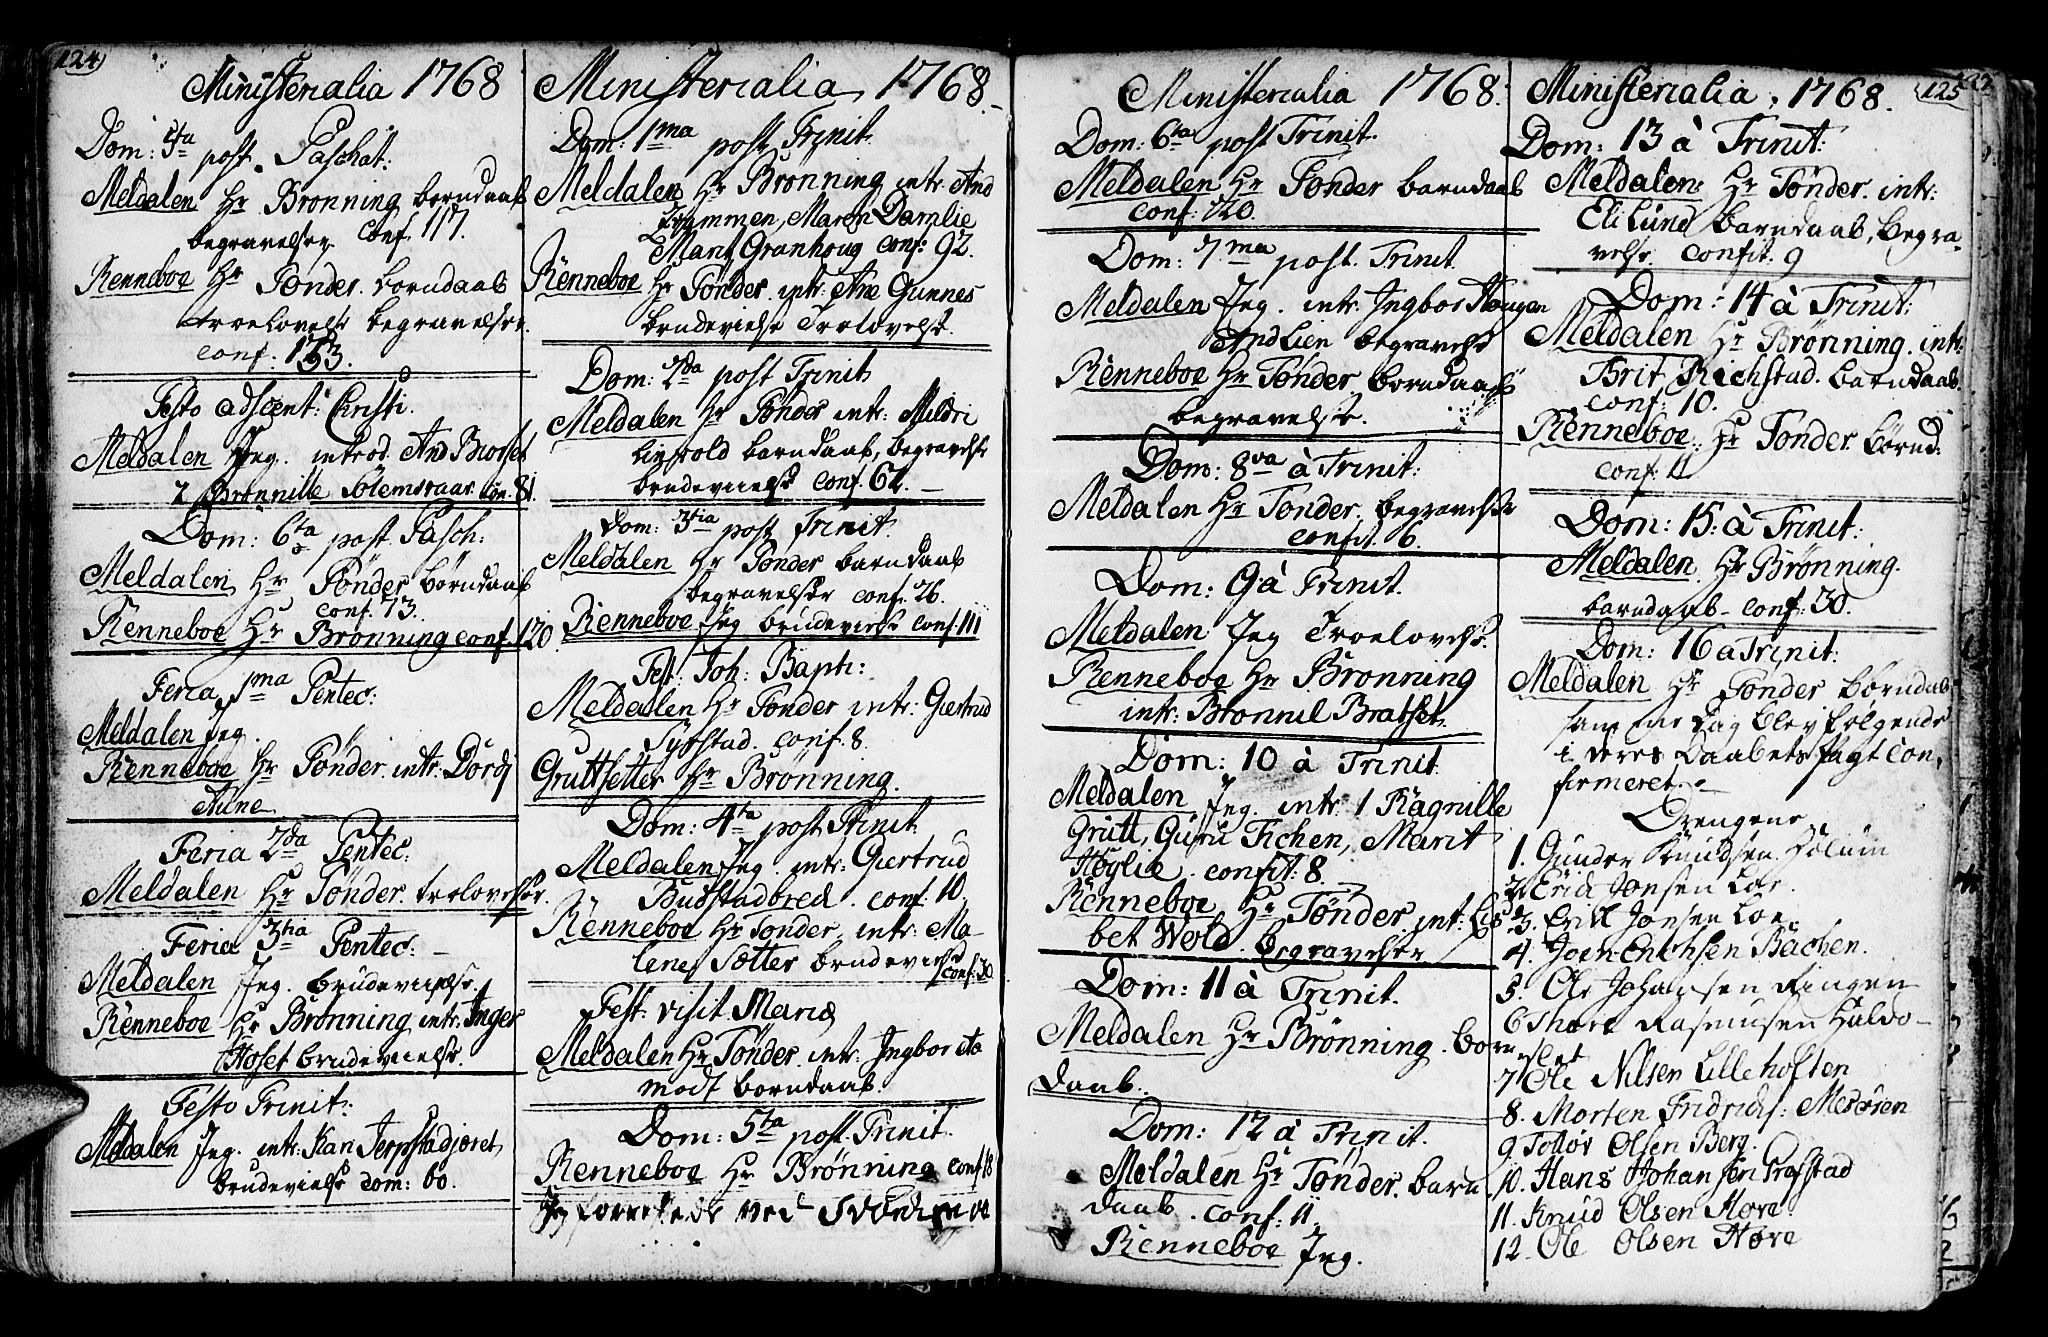 124
Ministerialia 1768
Dom: 5ta post. Paschat:
Meldalen Hr Brønning barndaab
begravelser. Conf. 117.
Renneboe Hr Tønder. barndaab
troelovelse begravelser.
conf. 153.
Festo adscent: Christi.
Meldalen Jeg. introd. And Brosset
2 Brønnille Solemsraar con. 81.
Dom: 6ta post. Pasch:
Meldalen Hr Tönder börndaab
conf. 73.
Renneboe Hr Brønning conf. 120
Feria 1ma Pentec:
Meldalen Jeg.
Renneboe Hr Tönder. intr. Dordi
Aune
Feria 2da Pentec:
Meldalen Hr Tönder. trolovelser.
Feria 3tia Pentec:
Meldalen Jeg. brudevielse.
Renneboe Hr Brønning intr. Inger
Hoset brudevielse.
Festo Trinit:
Meldalen Jeg. intr. Kari Jerpstadjøret
brudevielse com: 60.
Ministerialia 1768.
Dom: 1ma post Trinit.
Meldalen Hr Brønning intr. And
Maren Damlie
Marit Granhoug conf: 92.
Renneboe Hr Tönder. intr. Ane Gunnes
brudevielse Trolovelse.
Dom: 2da post Trinit
Meldalen Hr Tönder intr: Mildri
barndaab, begravelse
brudevielse conf. 62.
Dom: 3tia post Trinit.
Meldalen Hr Tönder barndaab
begravelser conf. 26.
Renneboe Jeg brudevielse conf. 111
Fest. Joh: Bapti:
Meldalen Hr Tönder intr: Giertrud
Syrstad. conf. 8.
Gruttsetter Hr Brønning.
Dom: 4ta post Trinit
Meldalen Jeg. intr: Giertrud
Buestadbred. conf. 10.
Renneboe Hr Tonder. intr. Ma-
lene Sætter brudevielse conf. 30
Fest. visit. Mariæ
Meldalen Hr Tönder. intr: Ingbor Aa
modt barndaab.
Dom: 5ta post. Trinit.
Renneboe Hr Brønning conf. 18
Jeg forrettede ved
Ministerialia 1768.
Dom: 6ta post Trinit.
Meldalen Hr Tönder barndaab
conf. 120.
Dom: 7ma post. Trinit.
Meldalen Jeg. intr. Ingbor Haugen
And Lien begravelse
Renneboe Hr Tönder barndaab
begravelse.
Dom: 8va à Trinit:
Meldalen Hr Tönder. begravelse
confit. 6.
Dom: 9 à Trinit.
Meldalen Jeg Troelovelse.
Renneboe Hr Brønning
intr: Brønnil Bratset.
Dom: 10 à Trinit
Meldalen Jeg. intr. 1 Ragnille
Grutt, Guru Fichen, Marit
Høylie. confit: 8
Renneboe Hr Tönder. int: Lis
bet Wold. begravelser
Dom: 11 à Trinit.
Meldalen Hr Brønning. børne
daab.
Dom: 12 à Trinit.
Meldalen Hr Tönder. barn
daab. conf: 11.
Renneboe Jeg.
Ministerialia, 1768. 125
Dom: 13 à Trinit:
Meldalen: Hr Tönder. intr:
Eli Lund barndaab, begra-
velse. confit. 9
Dom: 14 à Trinit:
Meldalen Hr Brønning. intr.
Brit Richstad. barndaab.
conf: 10.
Renneboe: Hr Tonder. börnd:
conf: 11
Dom: 15: à Trinit:
Meldalen Hr Brønning.
barndaab. conf: 30.
Dom: 16 a Trinit:
Meldalen Hr Tönder börndaab
samme dag blev følgende
i deres Daabets Pagt con-
firmeret.
Drengene
1. Gunder Knudsen Holum
2. Erich Jonsen Loe.
3. Erick Jonsen Loe.
4. Joen Erichsen Bachen.
5. Ole Johansen Ringen
6. Thore Rasmusen Haldo-
slet
7 Ole Nilsen Lilleholten
8. Morten Fridrichs: Meseren
9 Tollöv Olsen Berg.
10. Hans Johansen Grefstad
11. Knud Olsen Hove
12. Ole Olsen Hove